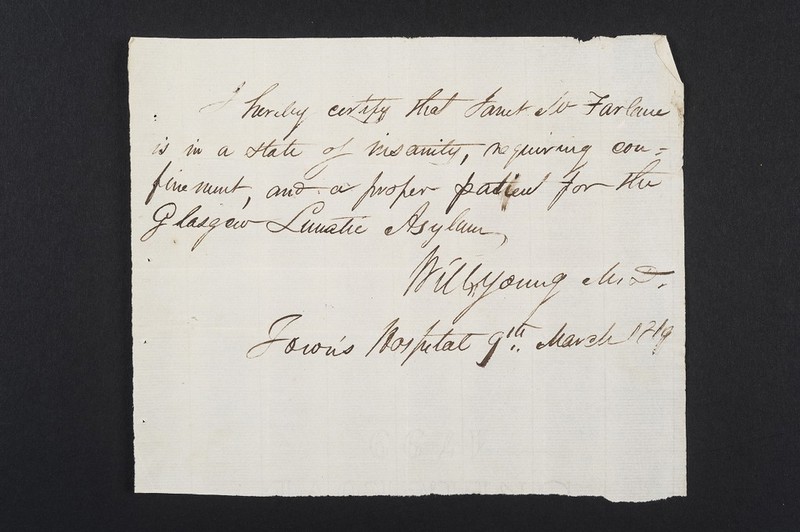 I hereby certify that Janet Mc Farlane
is in a state of insanity, requiring con=
finement, and a proper patient for the
Glasgow Lunatic Asylum,
Will. Young M.D.
Town's Hospital 9th. March 1819